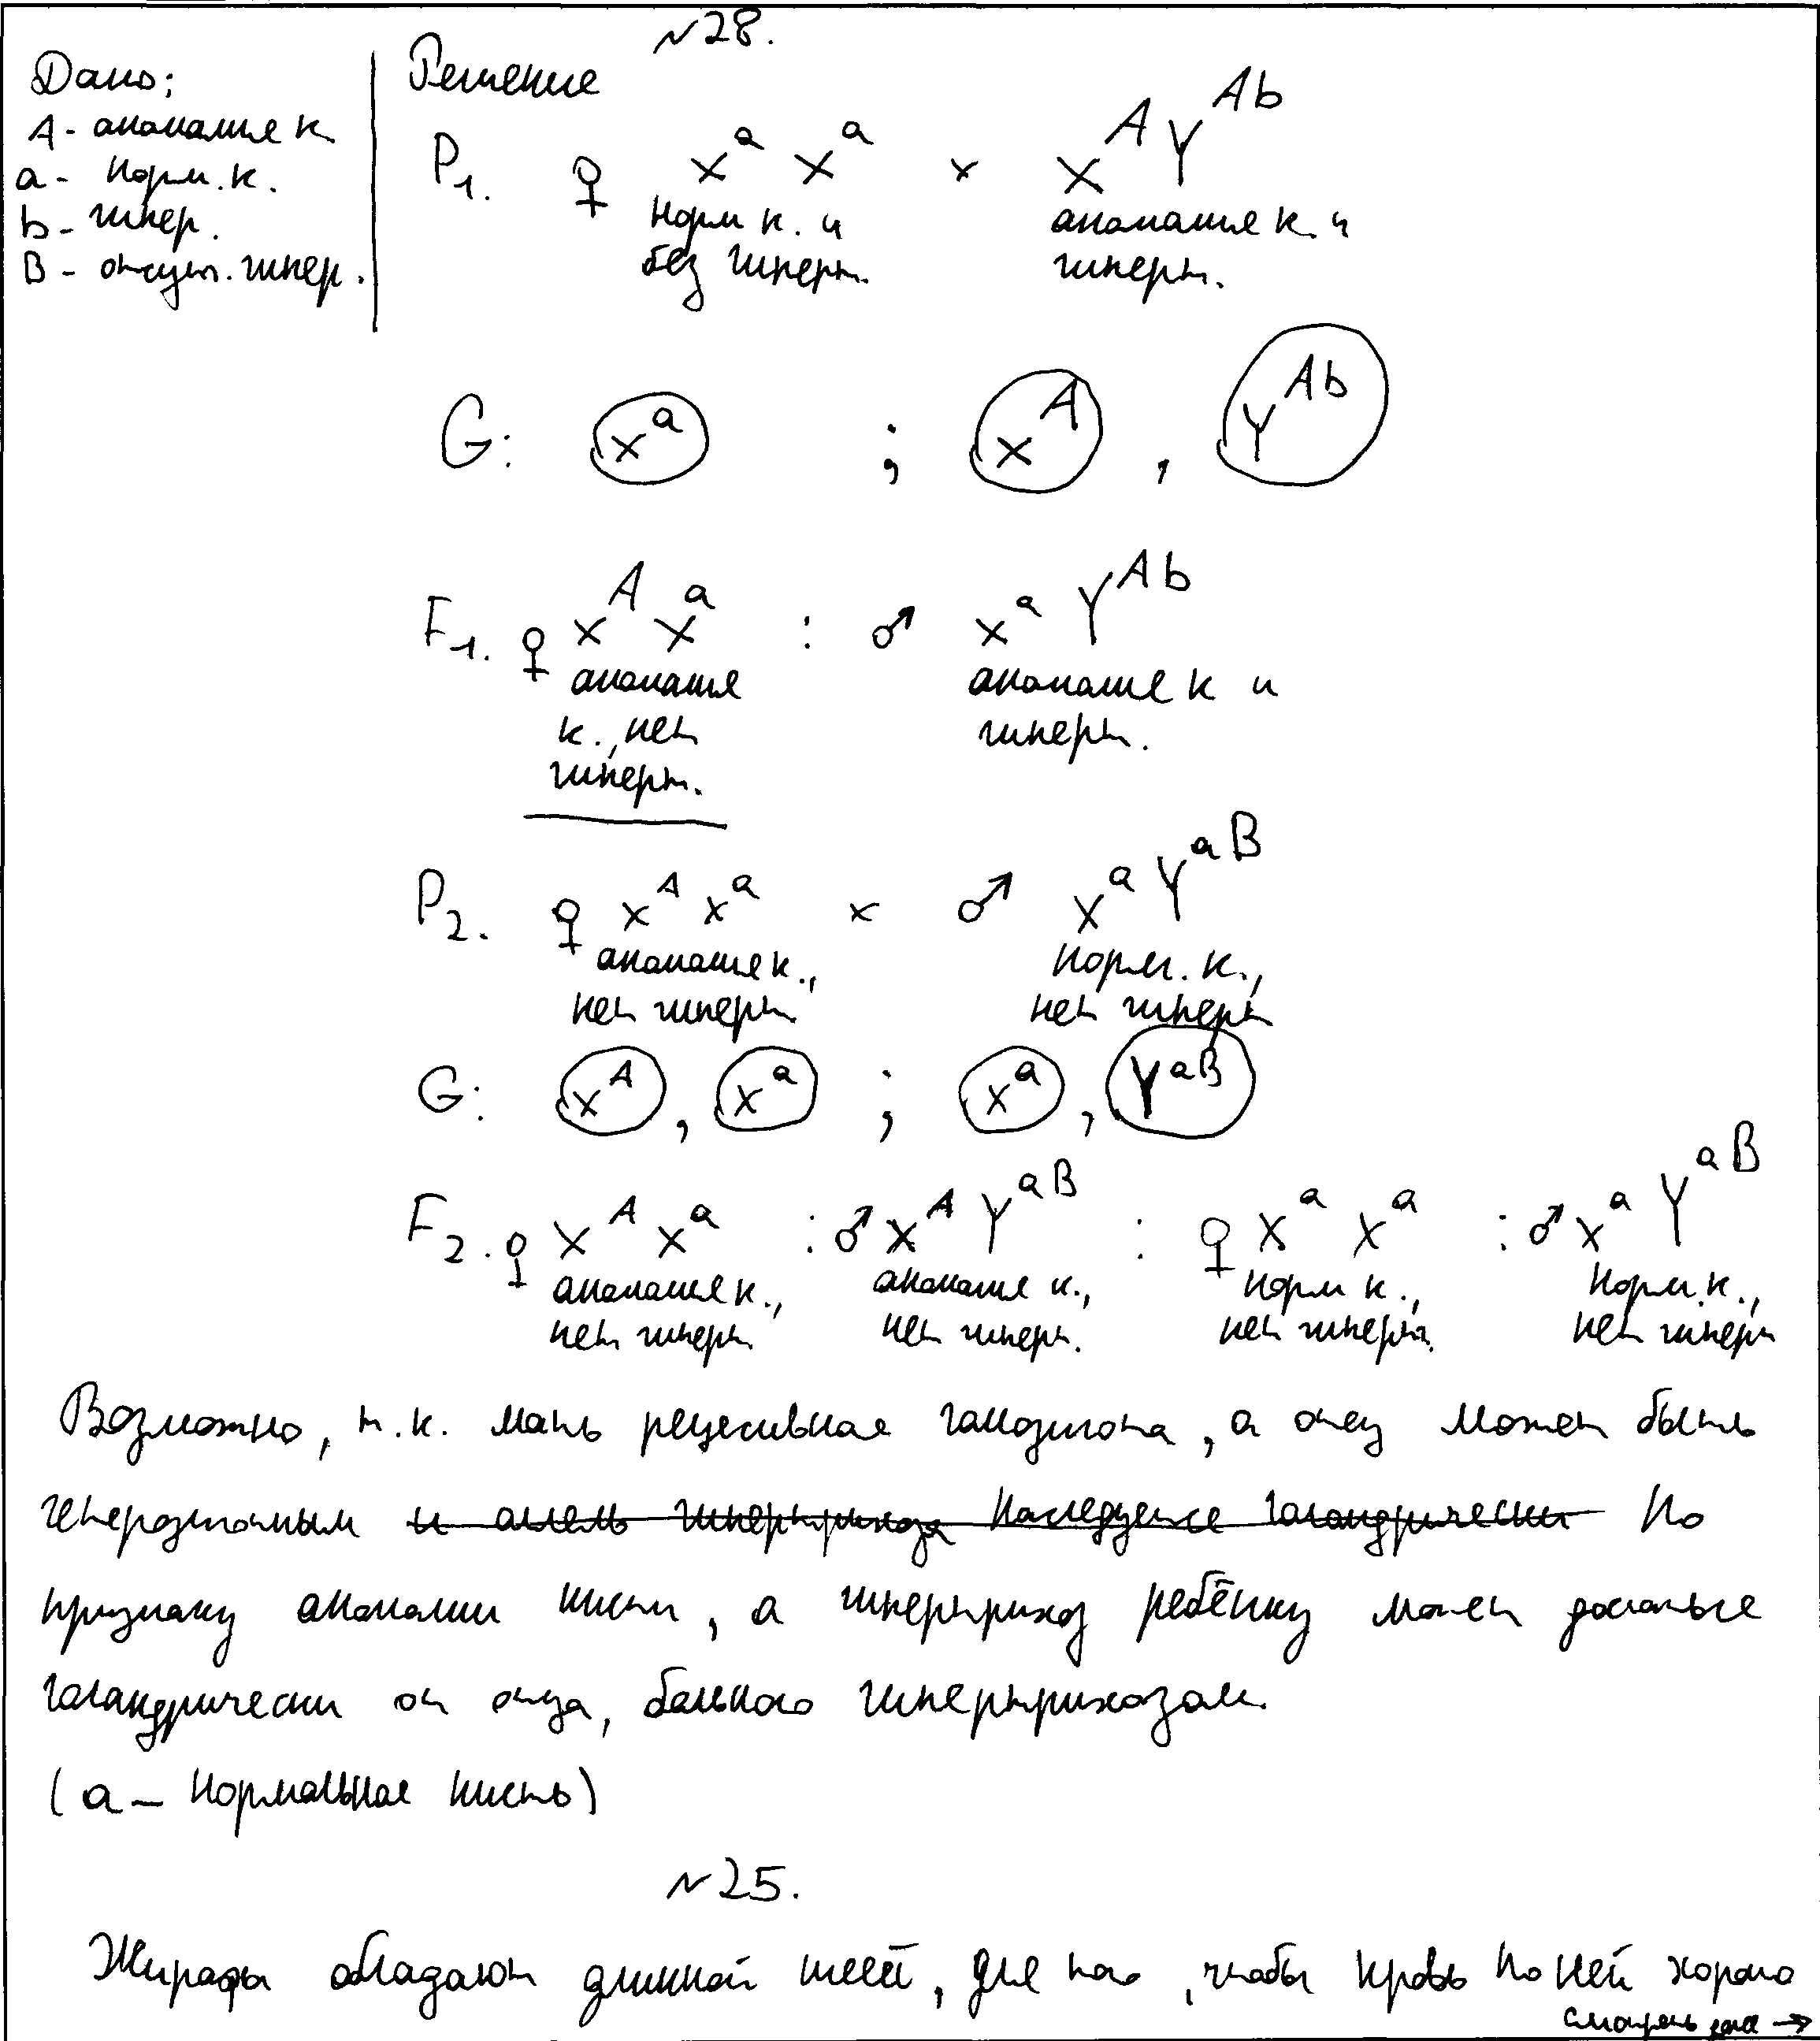 №28.
Дано:
А - аномалия к.
а - норм. к.
b - гипер.
B - отсут. гипер.
Решение
P₁. ♀ Xᵃ Xᵃ × Xᴬ Yᴬᵇ
норм к. и без гиперт. аномалия к. и гиперт.
G: Xᵃ ; Xᴬ , Yᴬᵇ
F₁. ♀ Xᴬ Xᵃ : ♂ Xᵃ Yᴬᵇ
аномалия к., нет гиперт. аномалия к и гиперт.
P₂. ♀ Xᴬ Xᵃ × ♂ Xᵃ Yᵃᴮ
аномалия к., нет гиперт. норм. к., нет гиперт
G: Xᴬ , Xᵃ ; Xᵃ , Yᵃᴮ
F₂. ♀ Xᴬ Xᵃ : ♂ Xᴬ Yᵃᴮ : ♀ Xᵃ Xᵃ : ♂ Xᵃ Yᵃᴮ
аномалия к., нет гиперт. аномалия к., нет гиперт. норм к., нет гиперт. норм. к., нет гиперт
Возможно, т.к. мать рецесивная гомозигота, а отец может быть
гетерозготным и аллель гипертрихоза наследуется голандрически по
признаку аномалии кисти, а гипертрихоз ребёнку может достаться
голандрически от отца, больного гипертрихозом.
(а – нормальная кисть)
№25.
Жирафы обладают длинной шеей, для того, чтобы кровь по ней хорошо